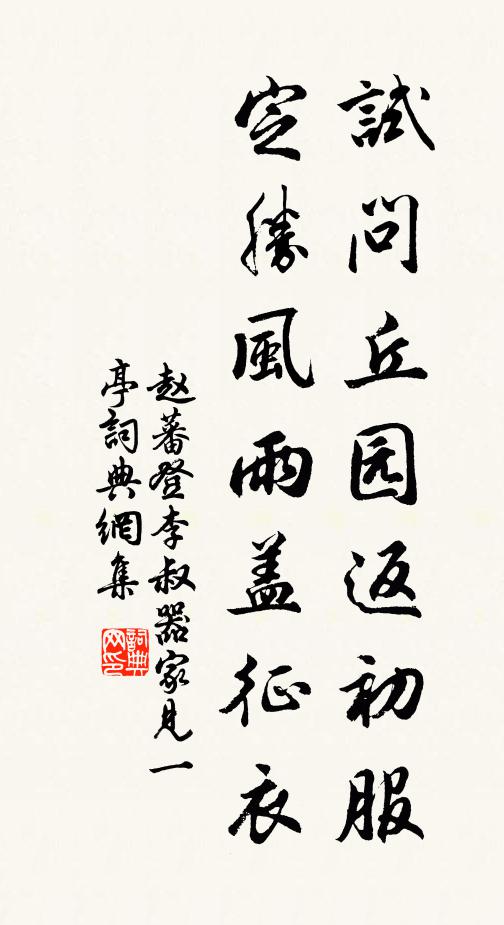 試問丘园返初服
定勝風雨盖征衣
赵蕃登李叔器家見一
亭詞典網集
詞典网印